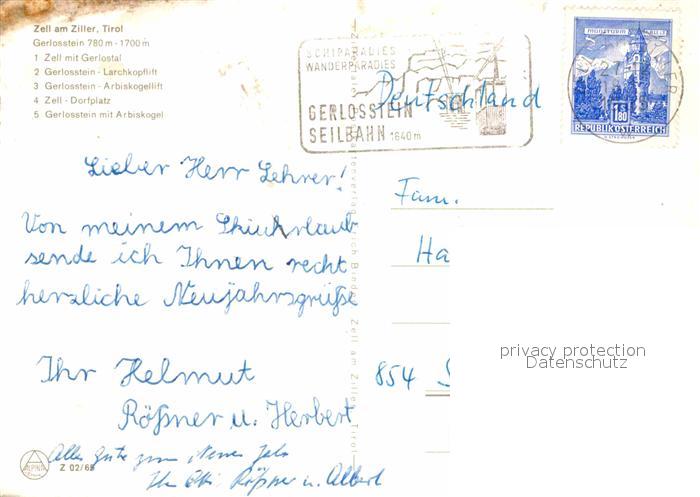 Zell am Ziller, Tirol
Gerlosstein 780 m - 1700 m
1 Zell mit Gerlostal
2 Gerlosstein - Larchkopflift
3 Gerlosstein - Arbiskogellift
4 Zell - Dorfplatz
5 Gerlosstein mit Arbiskogel
SCHIPARADIES
WANDERPARADIES
GERLOSSTEIN
SEILBAHN 1640 m
Deutschland
1.80
REPUBLIK ÖSTERREICH
Lieber Herr Lehrer!
Von meinem Skiurlaub
sende ich Ihnen recht
herzliche Neujahrsgrüße
Ihr Helmut
Rößner u. Herbert
Alles Gute zum Neuen Jahr
Rößner u. Albert
Fam.
Ha
854
privacy protection
Datenschutz
ALPINA
Z 02/65
Zell am Ziller, Tirol